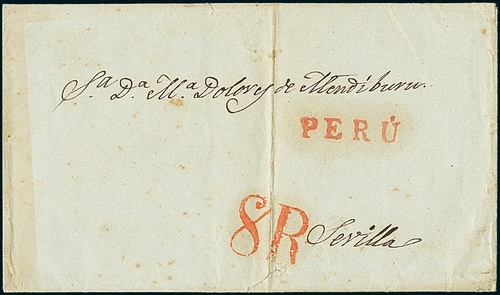 S.ª D.ª M.ª Dolores de Mendiburu.
PERÚ
8R
Sevilla